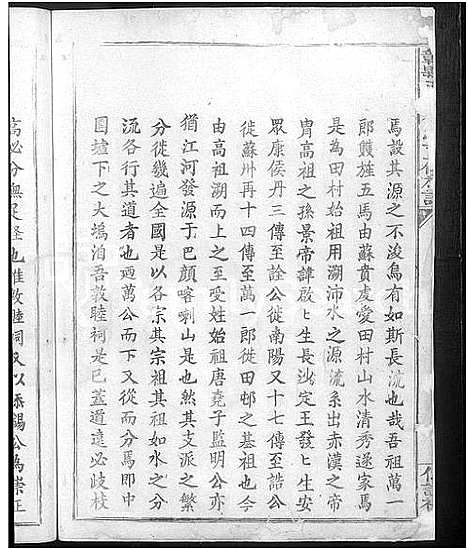 焉設其源之不浚烏有如斯長流也哉吾祖萬一
郎饌旌五馬由蘇貴虔愛田村山水清秀遂家焉
是為田村始祖用溯沛水之源流系出赤漢之帝
冑高祖之孫景帝諱啟啟生長沙定王發發生
眾康侯丹三傳至詮公徙南陽又十七傳至誥公
徙蘇州再十四傳至萬一郎徙田邨之基祖也
由高祖溯而上之至受姓始祖唐堯子監明公亦
猶江河發源于巴顏喀喇山是也然其支派之繁
分徙幾遍全國是以各宗其宗祖其祖如水之分
流各行其道者也迺萬公而下又從而分焉即中
圓墟下之大塢洎吾敦睦祠是已蓋道遠必歧枝
高必分無足怪也惟敦睦祠又以添錫公為崇正